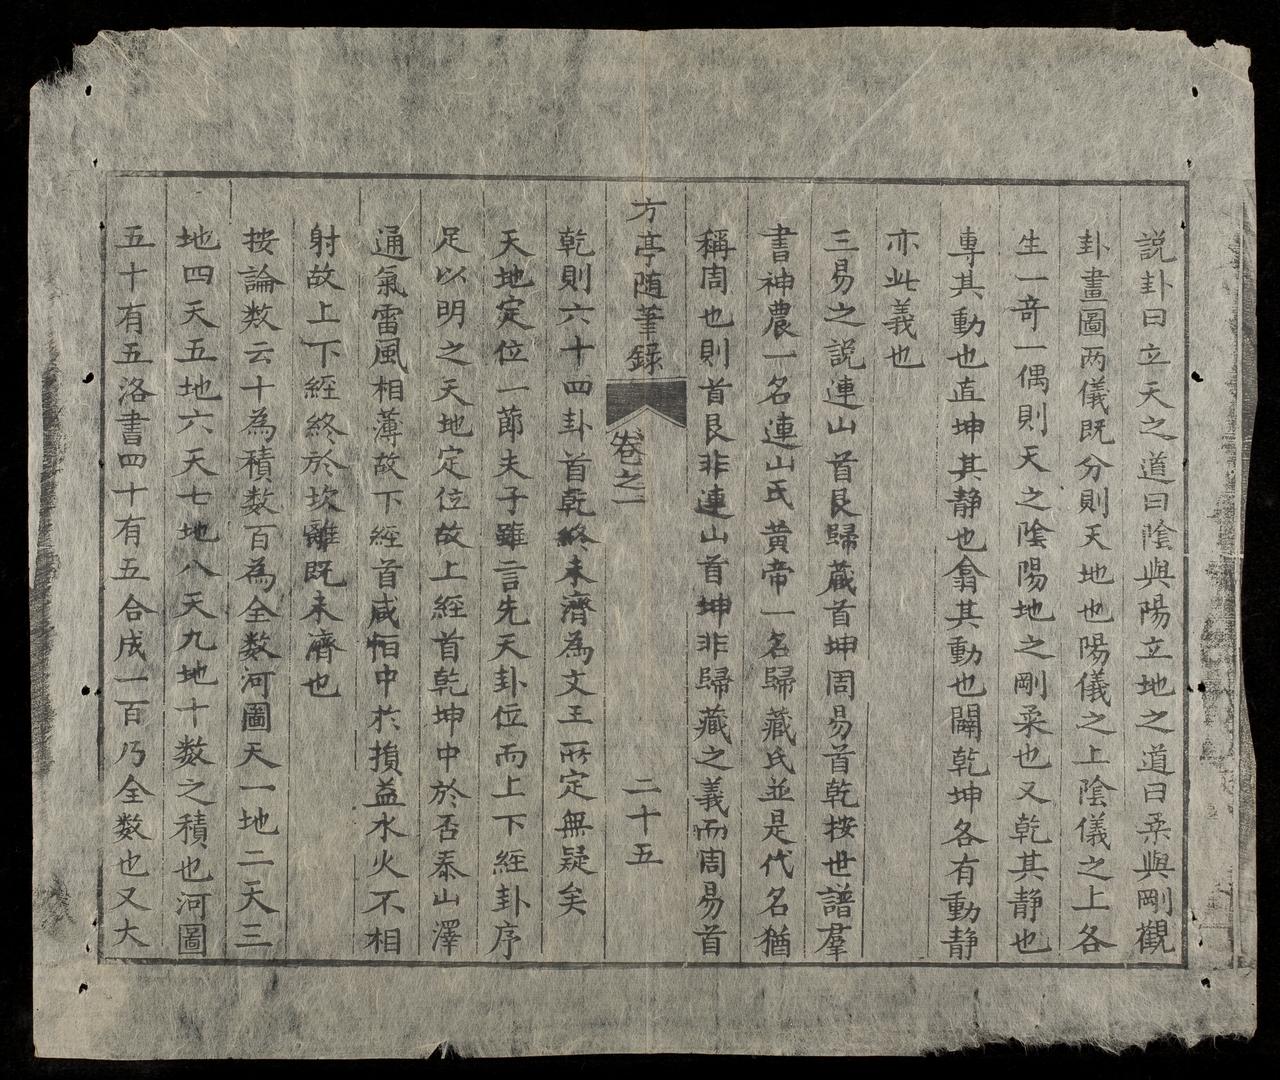 説卦曰立天之道曰陰與陽立地之道曰柔與剛觀
卦畫圖两儀既分則天地也陽儀之上陰儀之上各
生一竒一偶則天之陰陽地之剛柔也又乾其静也
專其動也直坤其静也翕其動也闢乾坤各有動静
亦此義也
三易之説連山首艮歸蔵首坤周易首乾按世譜羣
書神農一名連山氏黄帝一名歸藏氏並是代名猶
稱周也則首艮非連山首坤非歸藏之義而周易首
方亭随筆録 卷之一 二十五
乾則六十四卦首乾終未濟為文王所定無疑矣
天地定位一節夫子雖言先天卦位而上下經卦序
足以明之天地定位故上經首乾坤中於否泰山澤
通氣雷風相薄故下經首咸恒中於損益水火不相
射故上下經終於坎離既未濟也
按論数云十為積数百為全数河圖天一地二天三
地四天五地六天七地八天九地十数之積也河圖
五十有五洛書四十有五合成一百乃全数也又大